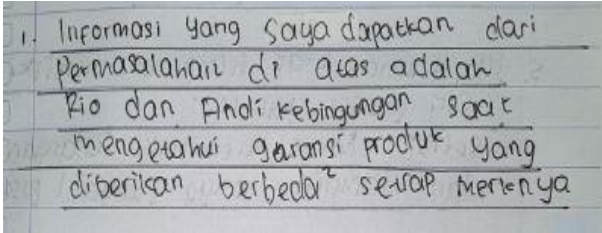 1. Informasi yang saya dapatkan dari
Permasalahan di atas adalah
Rio dan Andi kebingungan saat
mengetahui garansi produk yang
diberikan berbeda² setiap merknya